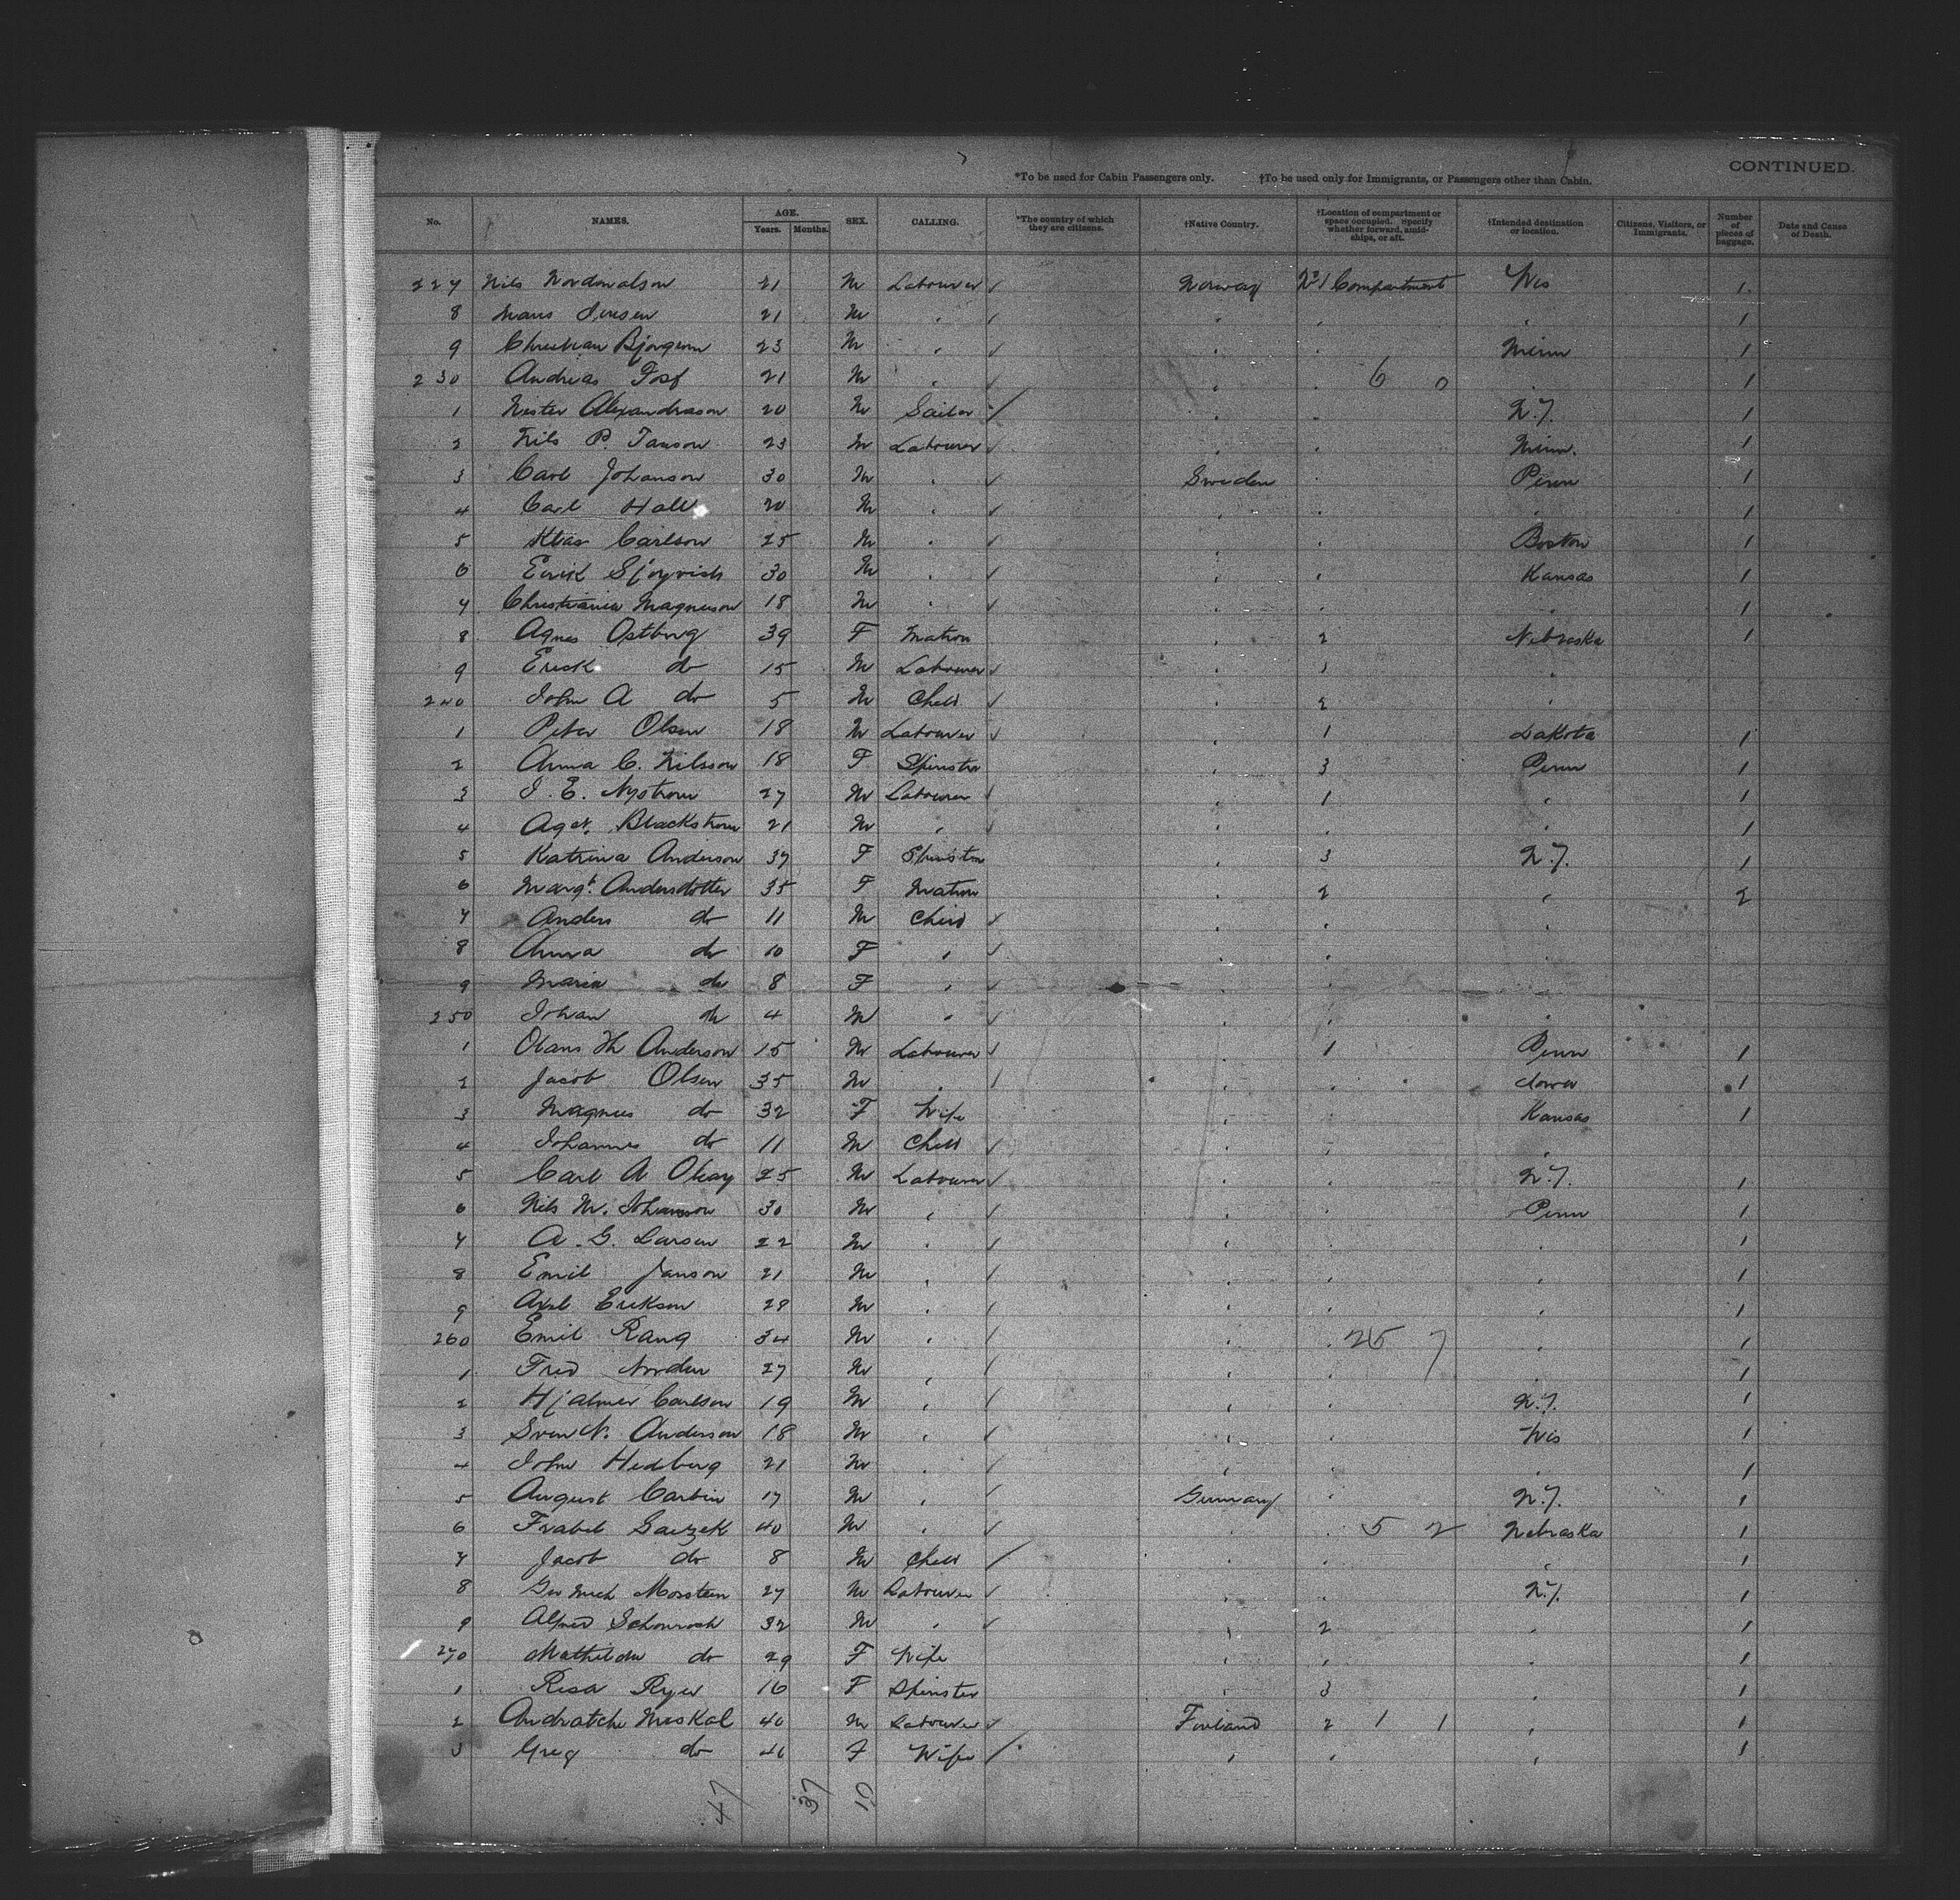 CONTINUED.
*To be used for Cabin Passengers only. †To be used only for Immigrants, or Passengers other than Cabin.
No. NAMES. AGE. Years. Months. SEX. CALLING. *The country of which they are citizens. †Native Country. †Location of compartment or space occupied. Specify whether forward, amidships, or aft. †Intended destination or location. Citizens, Visitors, or Immigrants. Number of pieces of baggage. Date and Cause of Death.
227 Nils Nordonalson 21 M Labourer Norway No 1 Compartment Wis 1
8 Hans 21 M " " " " 1
9 Christian 23 M " " " Minn 1
230 Andreas 21 M " " " 6 0 " 1
1 Alexandrason 20 M Sailor " " N.Y. 1
2 Nils P. Janson 23 M Labourer " " Minn. 1
3 Carl Johanson 30 M " Sweden " Penn 1
4 Carl Hall 20 M " " " " 1
5 Klas Carlson 25 M " " " Boston 1
6 Erik 30 M " " " Kansas 1
7 Magnuson 18 M " " " " 1
8 Agnes Ostburg 39 F Matron " 2 Nebraska 1
9 Erick do 15 M Labourer " 1 "
240 John A do 5 M Child " 2 "
1 Peter Olsen 18 M Labourer " 1 Dakota 1
2 Anna C. Nilsson 18 F Spinster " 3 Penn 1
3 J. E. Nystrom 27 M Labourer " 1 " 1
4 Agst. Blackstrom 21 M " " " " 1
5 Katrina Anderson 37 F Spinster " 3 N.Y. 1
6 Margt. Andersdotter 35 F Matron " 2 " 2
7 Anders do 11 M Child " " "
8 Anna do 10 F " " " "
9 Maria do 8 F " " " "
250 Johan do 4 M " " " "
1 Olans Anderson 15 M Labourer " 1 Penn 1
2 Jacob Olsen 35 M " " " Iowa 1
3 Magnus do 32 F Wife " " Kansas 1
4 Johannes do 11 M Child " " "
5 Carl A 25 M Labourer " " N.Y. 1
6 Nils M. Johansson 30 M " " " Penn 1
7 A. G. Larsen 22 M " " " " 1
8 Emil Janson 21 M " " " " 1
9 Axel Erikson 28 M " " " " 1
260 Emil Rang 34 M " " " 25 7 " 1
1 Fred Norden 27 M " " " " 1
2 Hjalmer Carlson 19 M " " " N.Y. 1
3 Sven N. Anderson 18 M " " " Wis 1
4 John Hedburg 21 M " " " " 1
5 August Carbin 17 M " Germany " N.Y. 1
6 40 M " " " 5 2 Nebraska 1
7 Jacob do 8 M Child " " "
8 Morstein 27 M Labourer " " N.Y. 1
9 Alfred 32 M " " 2 " 1
270 Mathilda do 29 F Wife " " " 1
1 Rosa Ryer 16 F Spinster " 3 " 1
2 Maskal 40 M Labourer Finland 2 1 1 " 1
3 Greg do 46 F Wife " " " 1
47 37 10